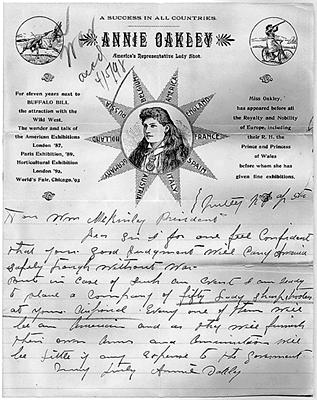 A SUCCESS IN ALL COUNTRIES.
ANNIE OAKLEY
America's Representative Lady Shot.
4/5/98
For eleven years next to
BUFFALO BILL
the attraction with the
Wild West.
The wonder and talk of
the American Exhibitions
London '87.
Paris Exhibition, '89.
Horticultural Exhibition
London '92
World's Fair, Chicago,'93
AMERICA
ENGLAND
FRANCE
SPAIN
ITALY
GERMANY
HOLLAND
Miss Oakley.
has appeared before all
the Royalty and Nobility
of Europe, including
their R. H. the
Prince and Princess
of Wales
before whom she has
given fine exhibitions.
Hon Wm McKinley President
Dear Sir I for one feel Confident
that your good judgment will carry America
safely through without War
But in case of such an Event I am ready
to place a Company of fifty lady sharpshooters
at your disposal. Every one of them will
be an American and as they will furnish
their own Arms and Ammunition will
be little if any expense to the government
Very truly Annie Oakley